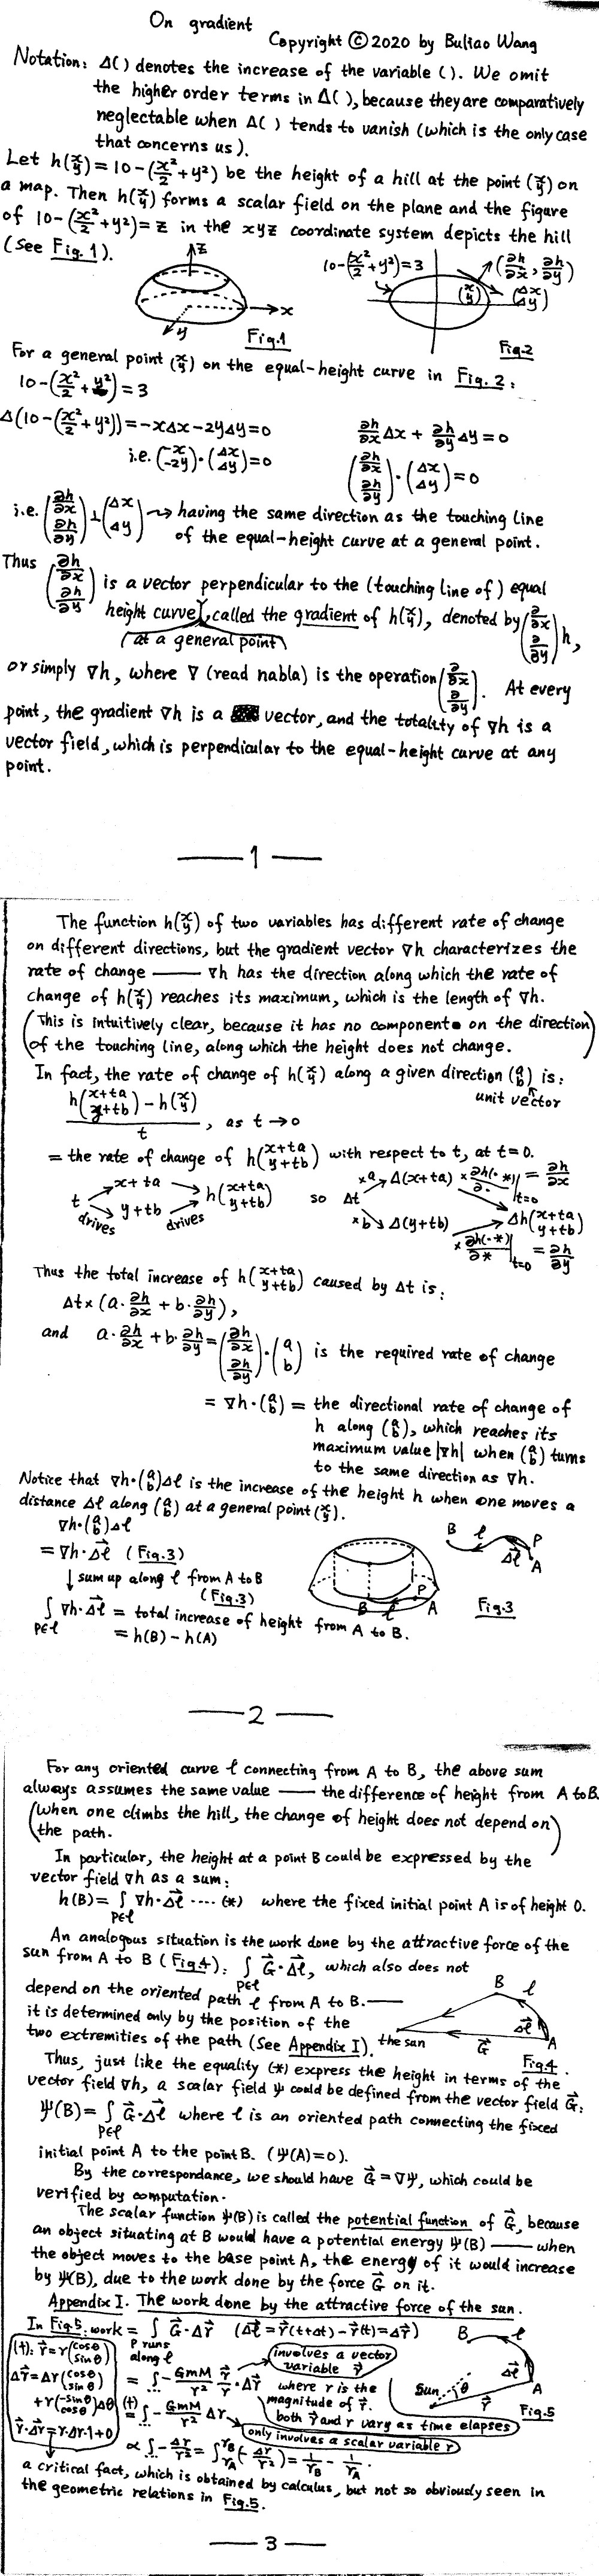 On gradient
Copyright © 2020 by Buliao Wang
Notation: Δ( ) denotes the increase of the variable ( ). We omit
the higher order terms in Δ( ), because they are comparatively
neglectable when Δ( ) tends to vanish (which is the only case
that concerns us).
Let h(x y) = 10-(x²/2+y²) be the height of a hill at the point (x y) on
a map. Then h(x y) forms a scalar field on the plane and the figure
of 10-(x²/2+y²)=z in the xyz coordinate system depicts the hill
(See Fig.1).
z
x
y
Fig.1
10-(x²/2+y²)=3
(∂h/∂x, ∂h/∂y)
(x y)
(Δx Δy)
Fig.2
For a general point (x y) on the equal-height curve in Fig. 2:
10-(x²/2+y²)=3
Δ(10-(x²/2+y²))=-xΔx-2yΔy=0
∂h/∂x Δx + ∂h/∂y Δy = 0
i.e. (-x -2y)·(Δx Δy)=0
(∂h/∂x ∂h/∂y)·(Δx Δy)=0
i.e. (∂h/∂x ∂h/∂y)⊥(Δx Δy) → having the same direction as the touching line
of the equal-height curve at a general point.
Thus (∂h/∂x ∂h/∂y) is a vector perpendicular to the (touching line of) equal
height curve, called the gradient of h(x y), denoted by (∂/∂x ∂/∂y)h,
(at a general point)
or simply ∇h, where ∇ (read nabla) is the operation (∂/∂x ∂/∂y). At every
point, the gradient ∇h is a vector, and the totality of ∇h is a
vector field, which is perpendicular to the equal-height curve at any
point.
— 1 —
The function h(x y) of two variables has different rate of change
on different directions, but the gradient vector ∇h characterizes the
rate of change — ∇h has the direction along which the rate of
change of h(x y) reaches its maximum, which is the length of ∇h.
(This is intuitively clear, because it has no component on the direction
of the touching line, along which the height does not change.)
In fact, the rate of change of h(x y) along a given direction (a b) is:
unit vector
(h(x+ta y+tb) - h(x y))/t, as t→0
= the rate of change of h(x+ta y+tb) with respect to t, at t=0.
t drives x+ta y+tb drives h(x+ta y+tb)
so Δt ×a Δ(x+ta) ×∂h(· *)/∂· |t=0 = ∂h/∂x
×b Δ(y+tb) ×∂h(· *)/∂* |t=0 = ∂h/∂y
Δh(x+ta y+tb)
Thus the total increase of h(x+ta y+tb) caused by Δt is:
Δt×(a·∂h/∂x + b·∂h/∂y),
and a·∂h/∂x + b·∂h/∂y = (∂h/∂x ∂h/∂y)·(a b) is the required rate of change
= ∇h·(a b) = the directional rate of change of
h along (a b), which reaches its
maximum value |∇h| when (a b) turns
to the same direction as ∇h.
Notice that ∇h·(a b)Δl is the increase of the height h when one moves a
distance Δl along (a b) at a general point (x y).
∇h·(a b)Δl
= ∇h·Δl (Fig.3)
↓ sum up along l from A to B
(Fig.3)
∫ P∈l ∇h·Δl = total increase of height from A to B.
= h(B) - h(A)
B l P A
B l P Δl A
Fig.3
— 2 —
For any oriented curve l connecting from A to B, the above sum
always assumes the same value — the difference of height from A to B.
(When one climbs the hill, the change of height does not depend on
the path.)
In particular, the height at a point B could be expressed by the
vector field ∇h as a sum:
h(B)= ∫ P∈l ∇h·Δl ···· (*) where the fixed initial point A is of height 0.
An analogous situation is the work done by the attractive force of the
sun from A to B (Fig.4): ∫ P∈l G·Δl, which also does not
depend on the oriented path l from A to B. —
it is determined only by the position of the
two extremities of the path (See Appendix I).
B l
Δl
A
the sun
G
Fig.4
Thus, just like the equality (*) express the height in terms of the
vector field ∇h, a scalar field ψ could be defined from the vector field G:
ψ(B)= ∫ P∈l G·Δl where l is an oriented path connecting the fixed
initial point A to the point B. (ψ(A)=0).
By the correspondance, we should have G=∇ψ, which could be
verified by computation.
The scalar function ψ(B) is called the potential function of G, because
an object situating at B would have a potential energy ψ(B) — when
the object moves to the base point A, the energy of it would increase
by ψ(B), due to the work done by the force G on it.
Appendix I. The work done by the attractive force of the sun.
In Fig.5, work = ∫ G·Δr (Δl = r(t+Δt) - r(t) = Δr)
P runs along l
= ∫ - GmM/r² r/r · Δr where r is the
magnitude of r.
both r and r vary as time elapses
involves a vector variable r
(†) = ∫ - GmM/r² Δr
only involves a scalar variable r
∝ ∫ - Δr/r² = ∫ rA rB (-Δr/r²) = 1/rB - 1/rA.
(†): r = r(cosθ sinθ)
Δr = Δr(cosθ sinθ)
+ r(-sinθ cosθ)Δθ
r·Δr = r·Δr·1+0
B l
Δl
A
Sun
θ
r
Fig.5
a critical fact, which is obtained by calculus, but not so obviously seen in
the geometric relations in Fig.5.
— 3 —